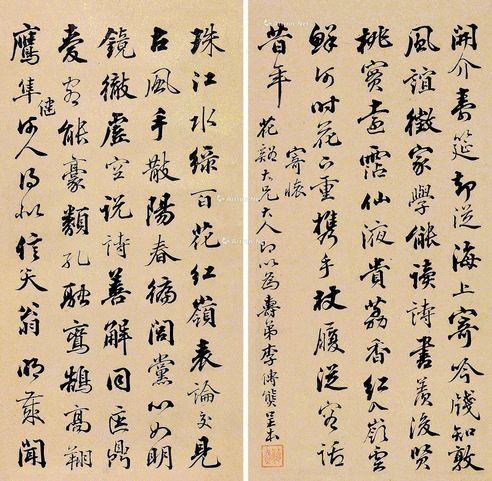 珠江水綠百花紅嶺表論交見
古風手散陽春徧閭黨心如明
鏡徹虛空說詩善解同匡鼎
愛客能豪類孔融鸞鵠高翔
鷹隼健何人得似信天翁昨歲聞
開介壽筵却從海上寄吟牋知敦
風誼徵家學能讀詩書羨後賢
桃實遠霑仙液貴荔香紅入嶺雲
鮮何時花下重攜手杖履從容話
昔年
寄懷
花大兄大人即以為壽弟李傳